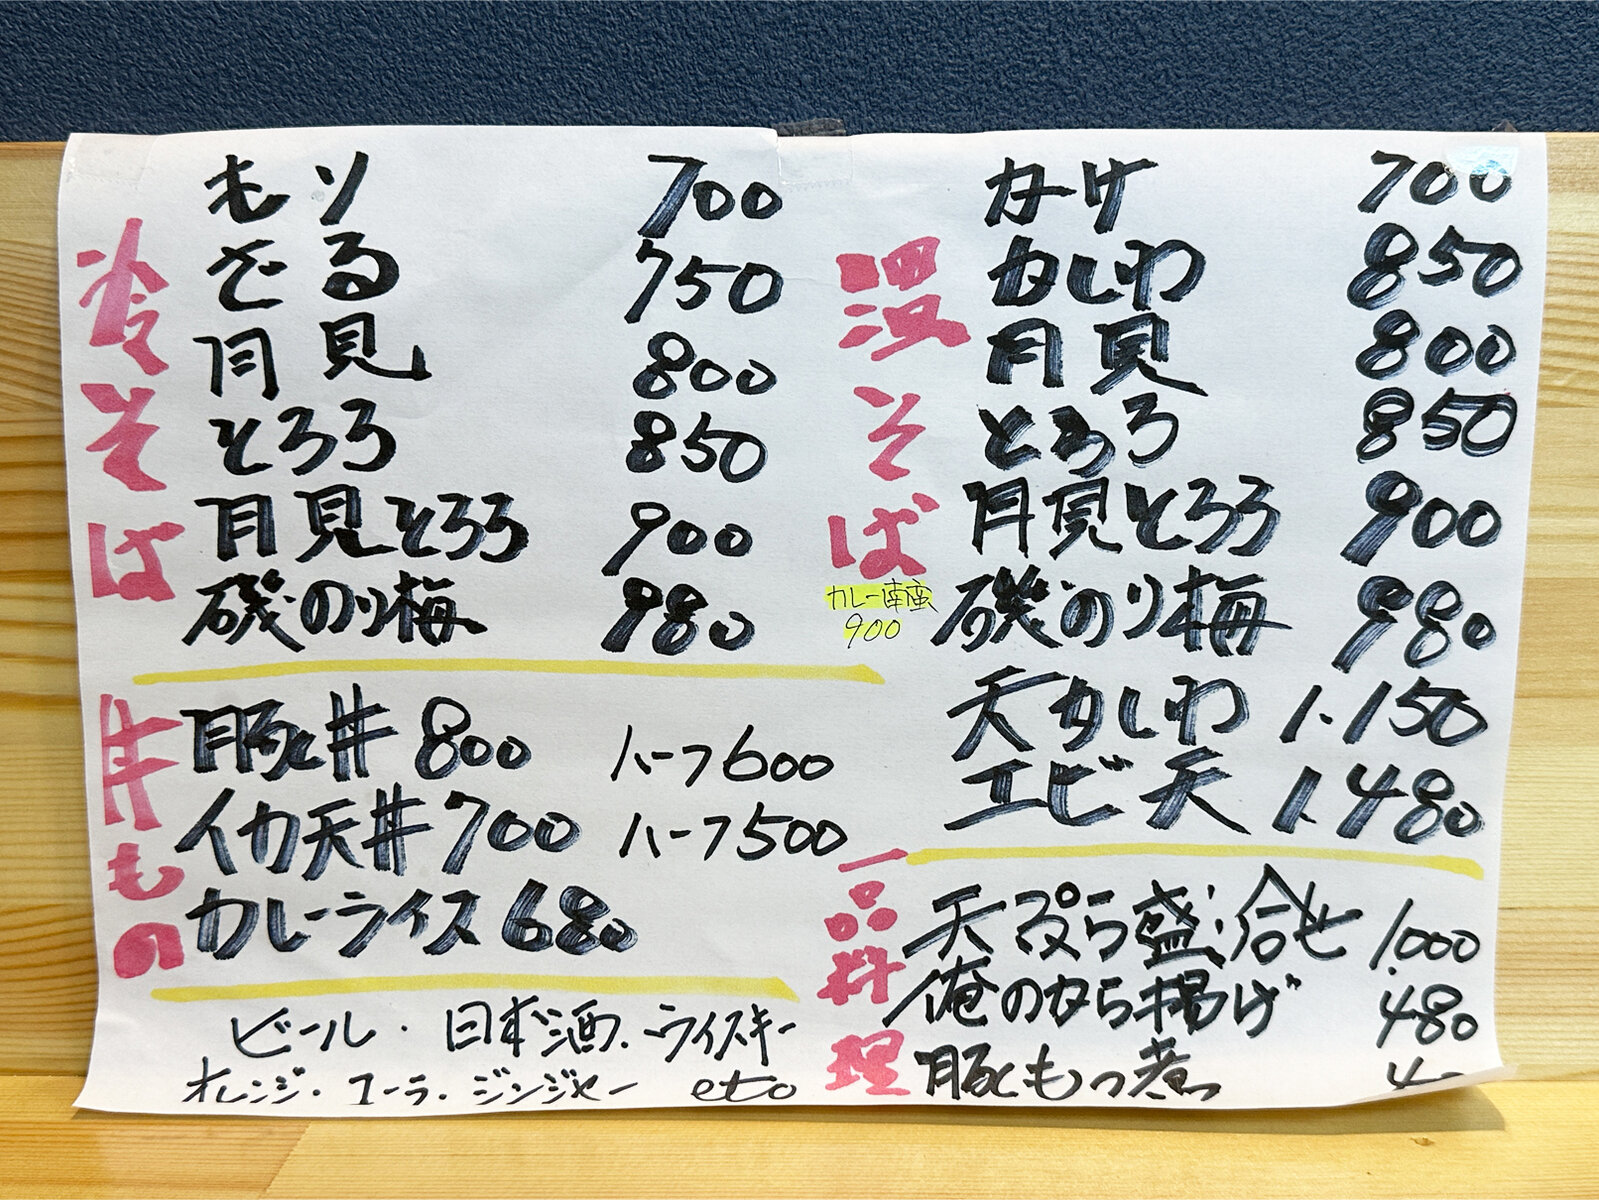 冷そば
もり 700
ざる 750
月見 800
とろろ 850
月見とろろ 900
磯のり梅 980
丼もの
豚丼 800 ハーフ600
イカ天丼 700 ハーフ500
カレーライス 680
ビール・日本酒・ウイスキー
オレンジ・コーラ・ジンジャー etc
温そば
かけ 700
かしわ 850
月見 800
とろろ 850
月見とろろ 900
磯のり梅 980
カレー南蛮
900
天かしわ 1.150
エビ天 1.480
一品料理
天ぷら盛り合せ 1.000
俺のから揚げ 480
豚もつ煮